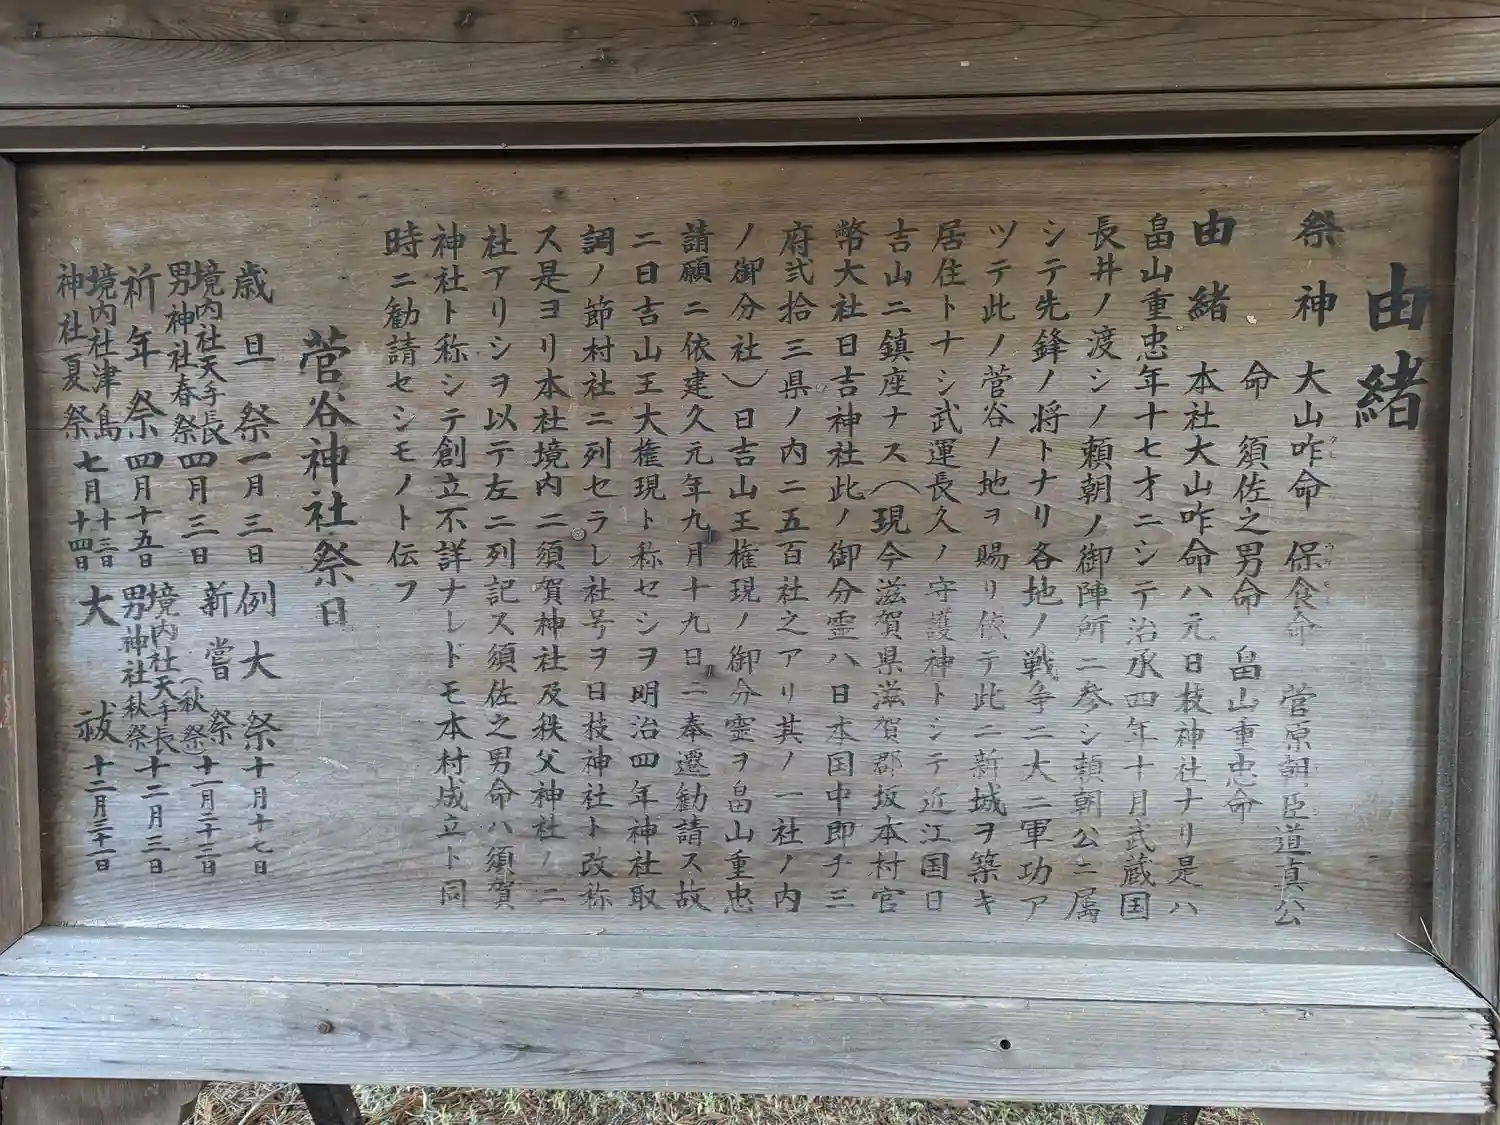 由緒
祭神 大山咋命 保食命 菅原朝臣道真公
命 須佐之男命 畠山重忠命
由緒 本社大山咋命ハ元日枝神社ナリ是ハ
畠山重忠年十七才ニシテ治承四年十月武蔵国
長井ノ渡シノ頼朝ノ御陣所ニ参シ頼朝公ニ属
シテ先鋒ノ将トナリ各地ノ戦争ニ大ニ軍功ア
ツテ此ノ菅谷ノ地ヲ賜リ依テ此ニ新城ヲ築キ
居住トナシ武運長久ノ守護神トシテ近江国日
吉山ニ鎮座ナス(現今滋賀県滋賀郡坂本村官
幣大社日吉神社此ノ御分霊ハ日本国中即チ三
府弐拾三県ノ内ニ五百社之アリ其ノ一社ノ内
ノ御分社)日吉山王権現ノ御分霊ヲ畠山重忠
請願ニ依建久元年九月十九日ニ奉遷勧請ス故
ニ日吉山王大権現ト称セシヲ明治四年神社取
調ノ節村社ニ列セラレ社号ヲ日枝神社ト改称
ス是ヨリ本社境内ニ須賀神社及秩父神社ノ二
社アリシヲ以テ左ニ列記ス須佐之男命ハ須賀
神社ト称シテ創立不詳ナレドモ本村成立ト同
時ニ勧請セシモノト伝フ
菅谷神社祭日
歳旦祭 一月三日 例大祭 十月十七日
境内社天手長男神社春祭 四月三日 新嘗祭(秋祭) 十一月二十三日
祈年祭 四月十五日 境内社天手長男神社秋祭 十二月三日
境内社津島神社夏祭 七月十三日十四日 大祓 十二月三十一日